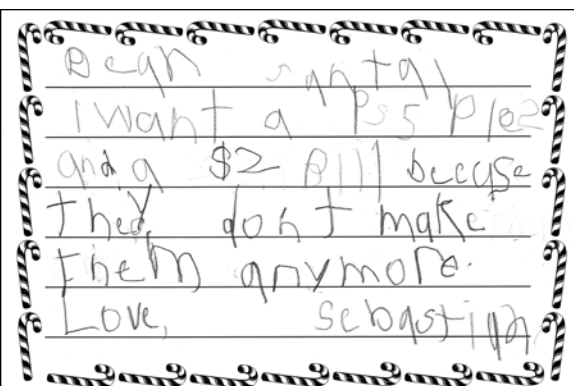 Dear santa,
I want a Ps5 Plez
and a $2 Bill becuse
they dont make
them anymore.
Love, Sebastian